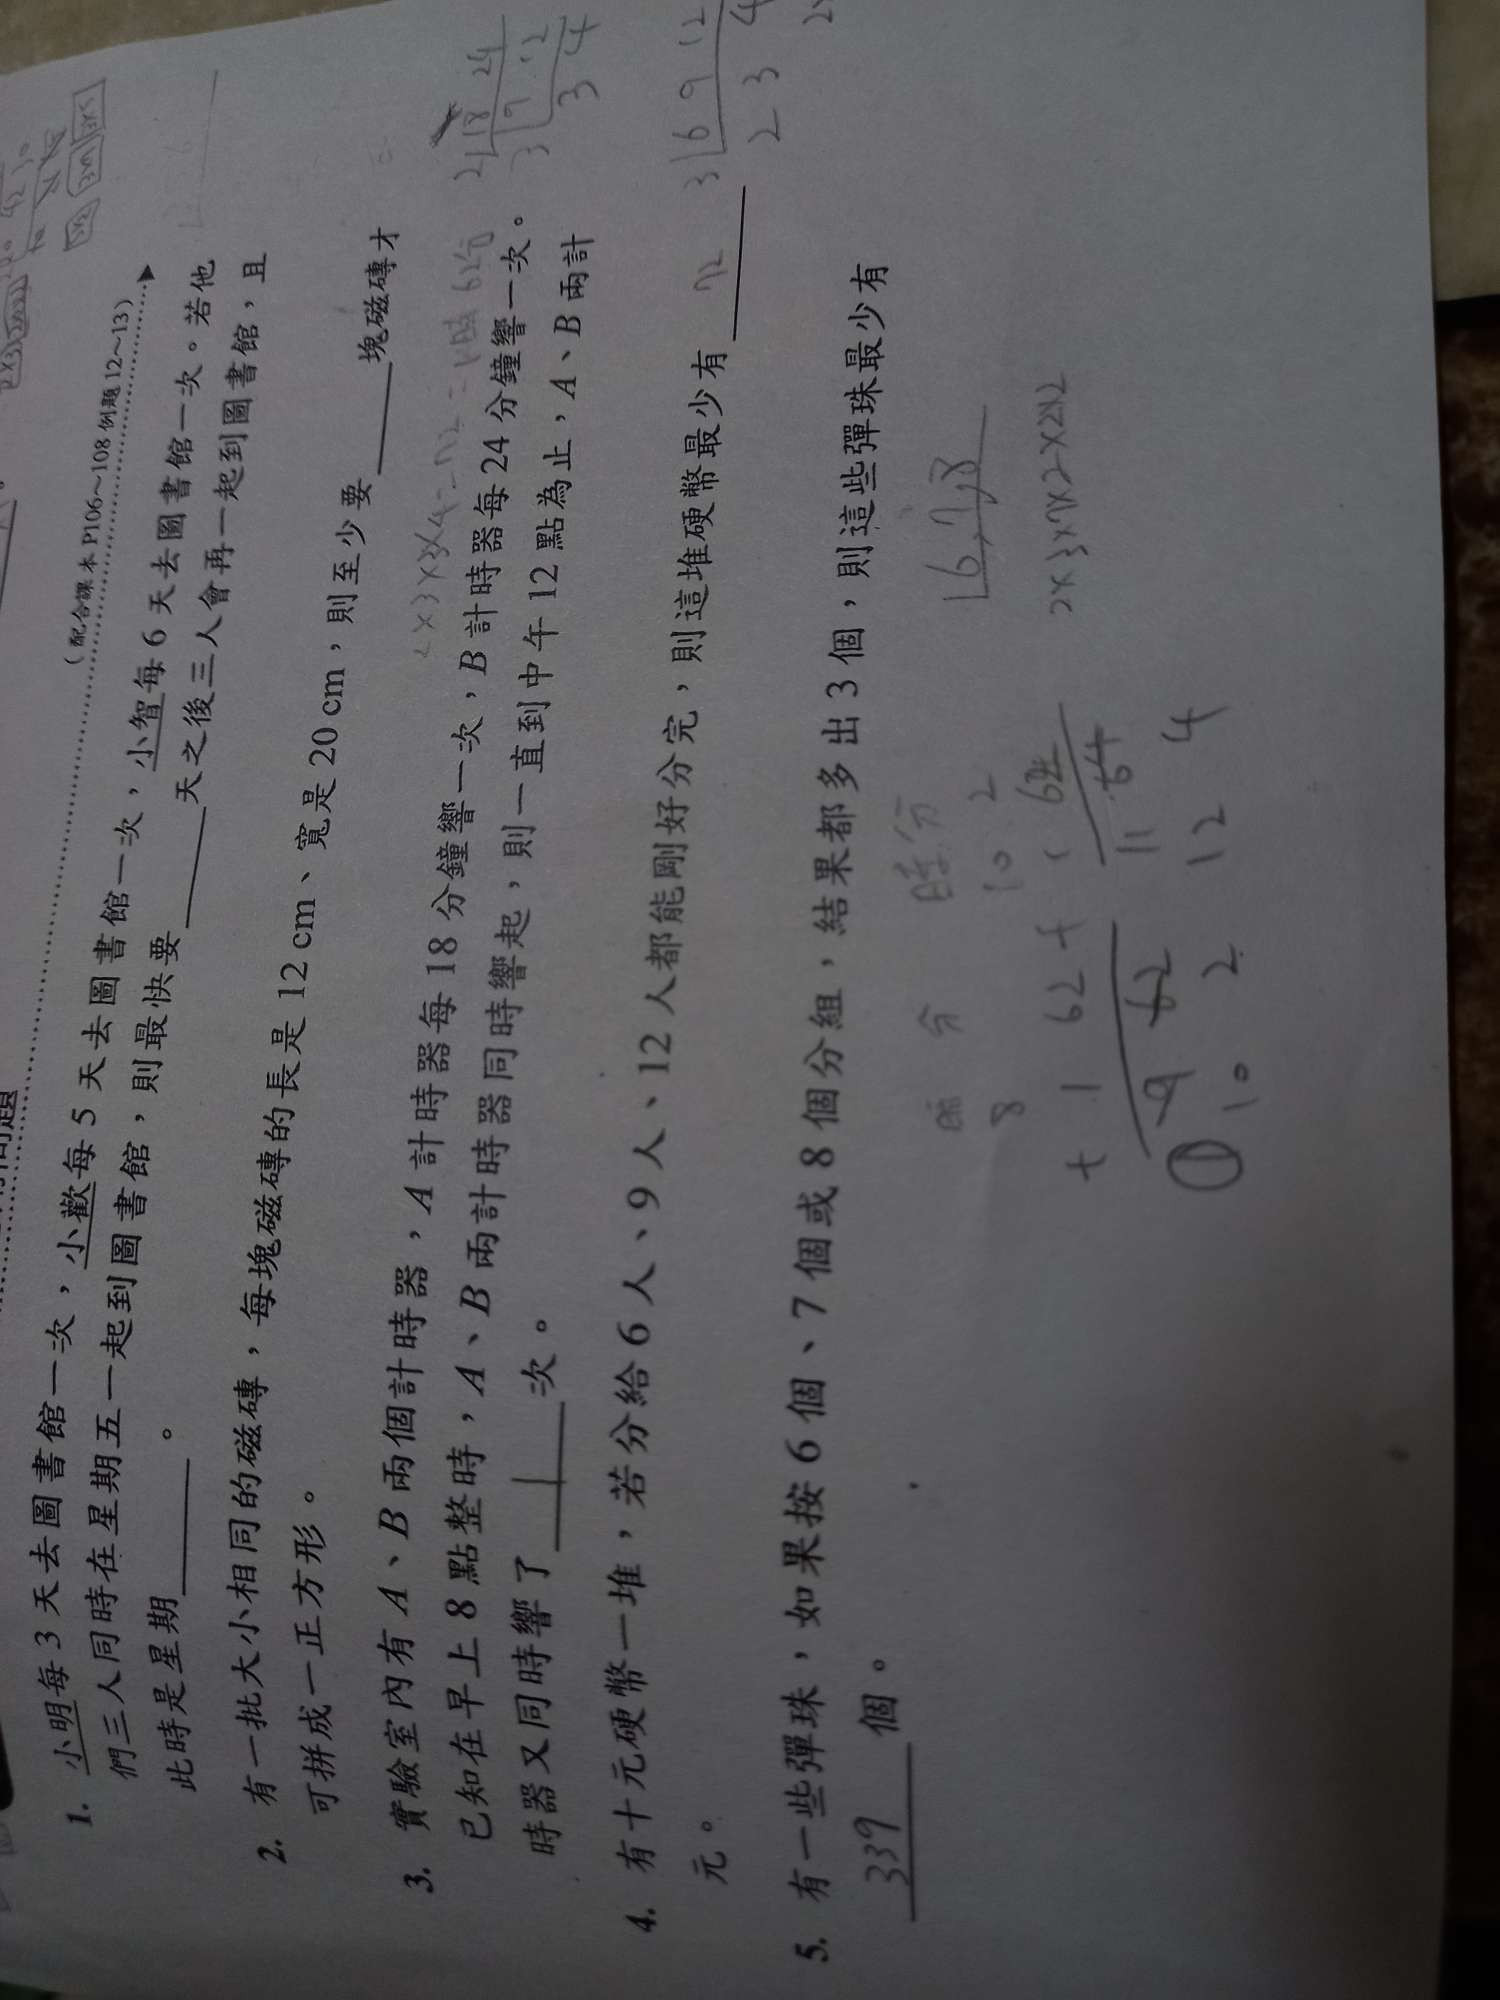 問題
（配合課本 P106～108 例題 12～13）
1. 小明每 3 天去圖書館一次，小歡每 5 天去圖書館一次，小智每 6 天去圖書館一次。若他
們三人同時在星期五一起到圖書館，則最快要＿＿＿天之後三人會再一起到圖書館，且
此時是星期＿＿＿。
2. 有一批大小相同的磁磚，每塊磁磚的長是 12 cm、寬是 20 cm，則至少要＿＿＿塊磁磚才
可拼成一正方形。
2×3×3×4=72=1時
2 18 24
3 9 12
3 4
3. 實驗室內有 A、B 兩個計時器，A 計時器每 18 分鐘響一次，B 計時器每 24 分鐘響一次。
已知在早上 8 點整時，A、B 兩計時器同時響起，則一直到中午 12 點為止，A、B 兩計
時器又同時響了＿＿＿次。
4. 有十元硬幣一堆，若分給 6 人、9 人、12 人都能剛好分完，則這堆硬幣最少有 72
元。
3 6 9 12
2 3 4
5. 有一些彈珠，如果按 6 個、7 個或 8 個分組，結果都多出 3 個，則這些彈珠最少有
339 個。
6,7,8
2×3×7×2×2×2
時 分
8
+ 1 62
9 62
10 2
時 分
10 2
11 64
12 4